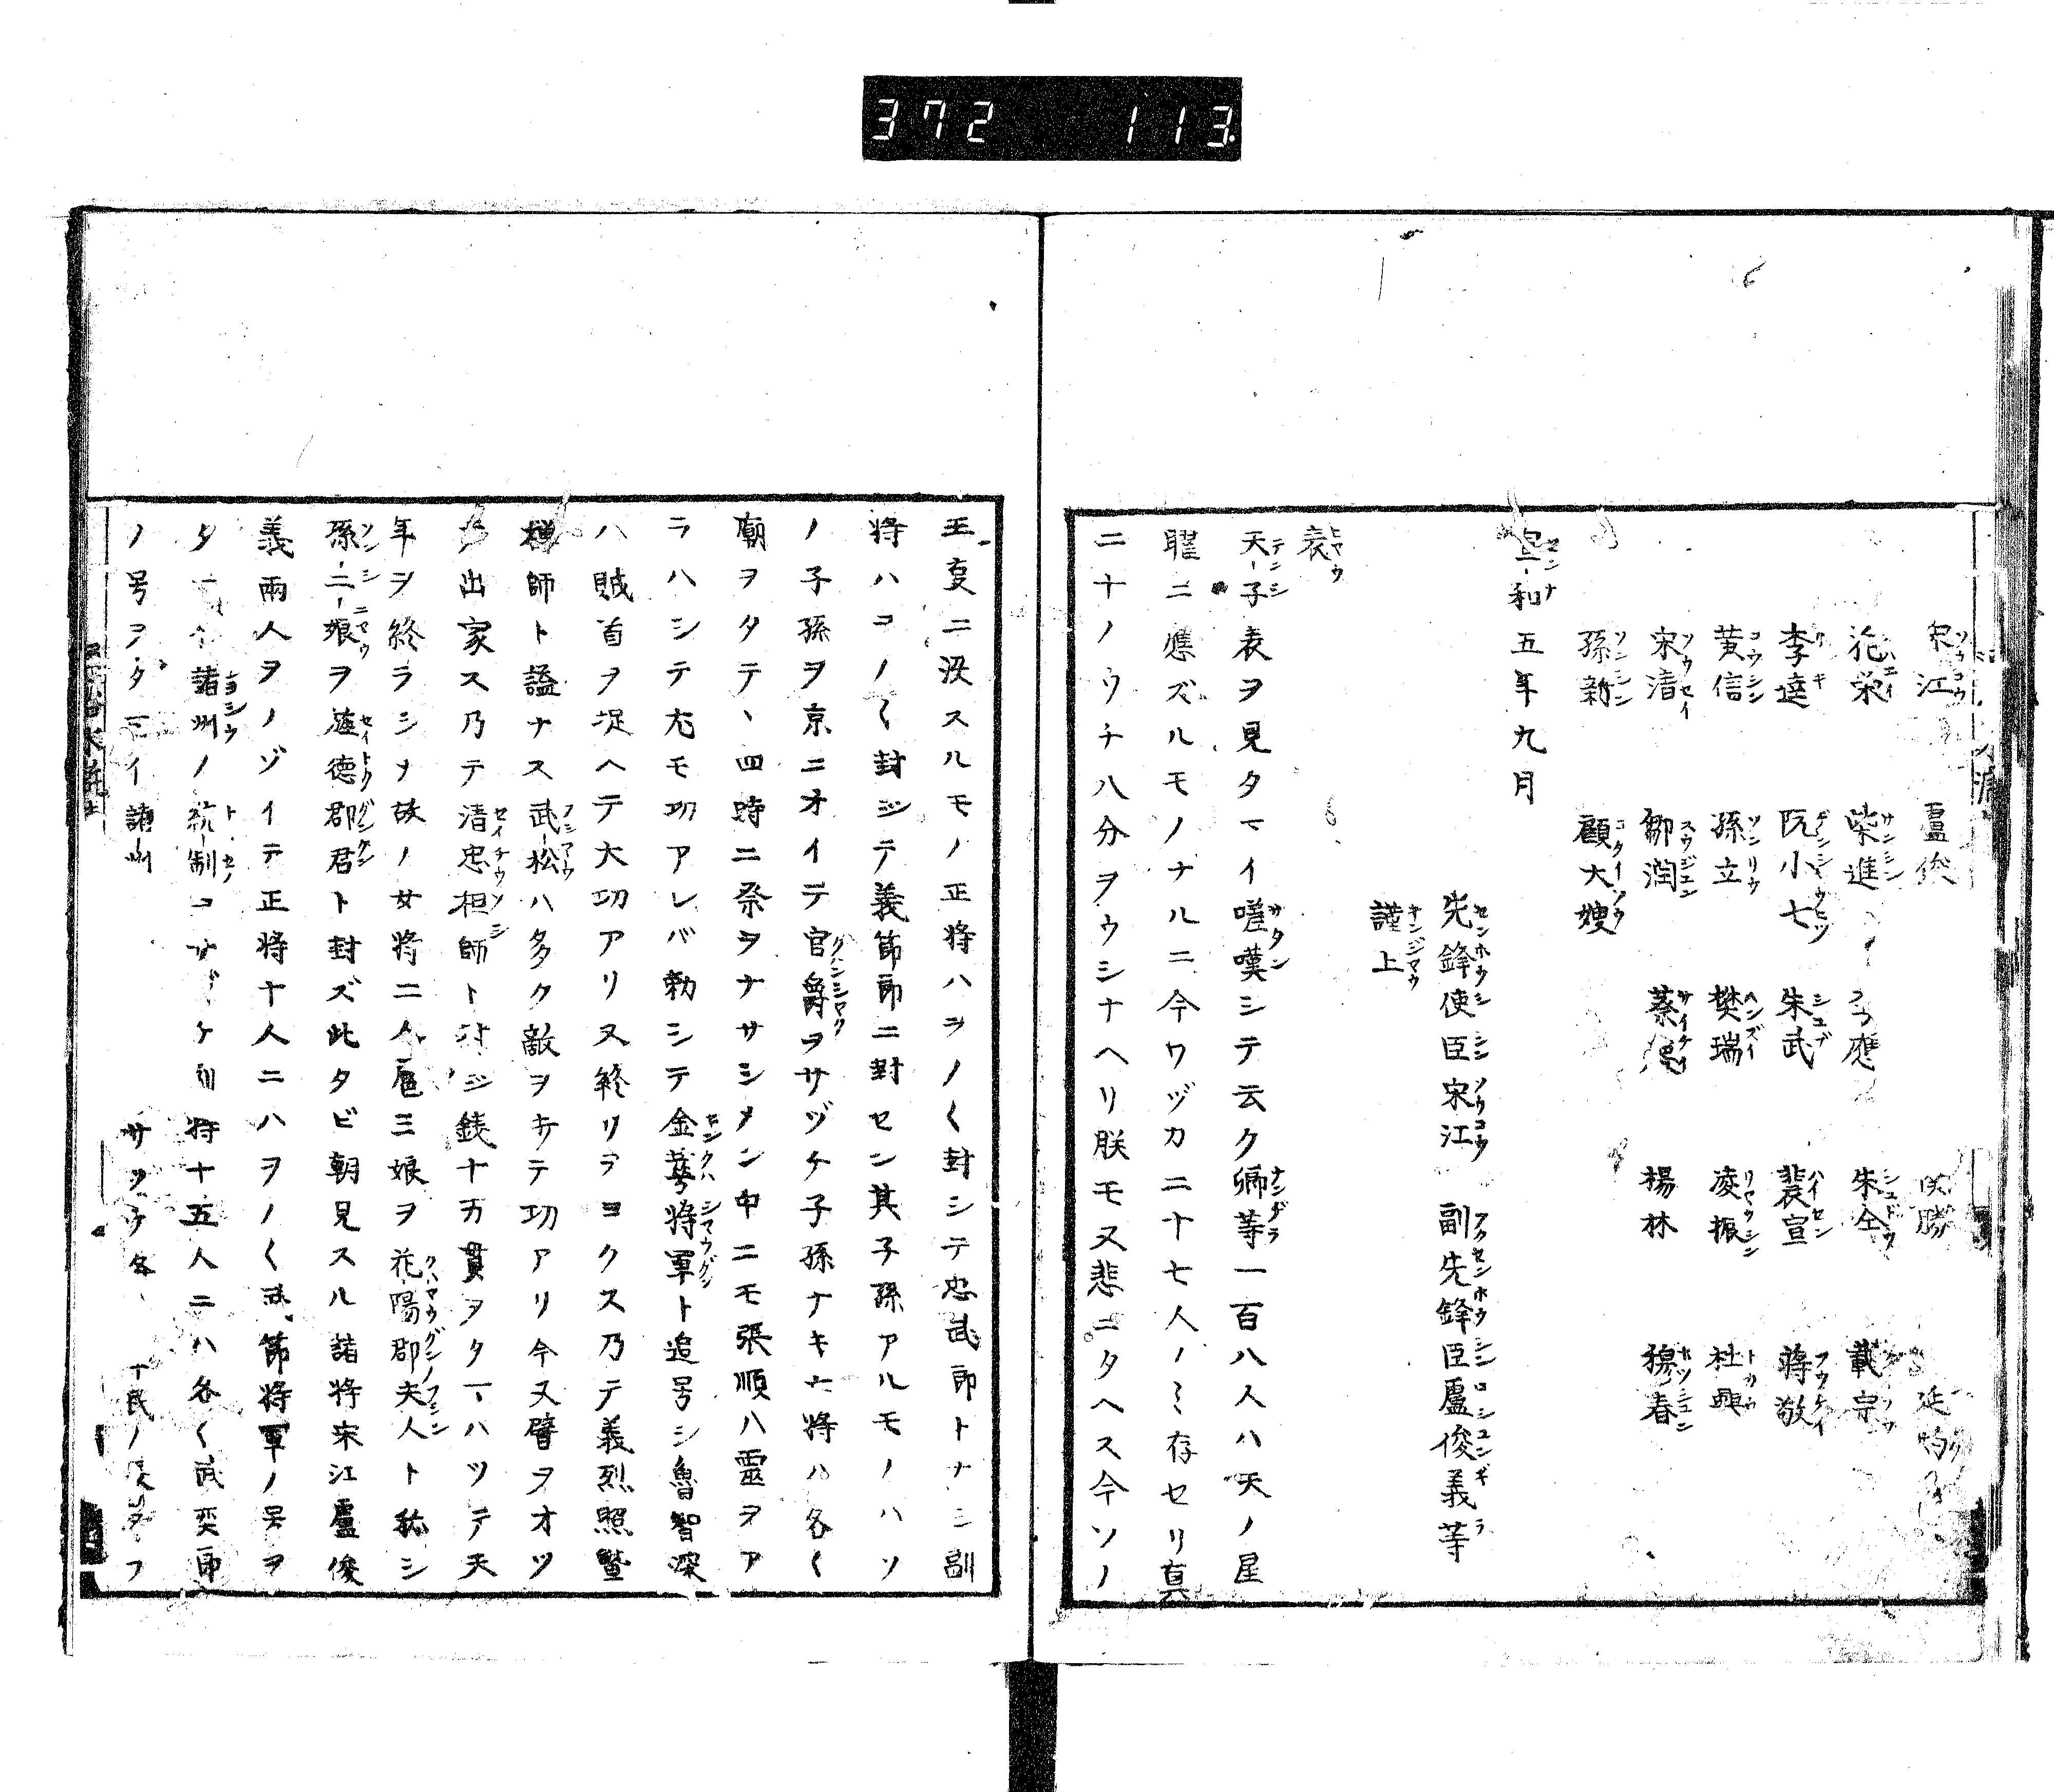 372 113
宋江 盧俊 関勝 延灼
花栄 柴進 李應 朱仝 戴宗
李逵 阮小七 朱武 裴宣 蒋敬
黄信 孫立 樊瑞 凌振 杜興
宋清 鄒潤 蔡慶 楊林 穆春
孫新 顧大嫂
宣和五年九月
先鋒使臣宋江 副先鋒臣盧俊義等
謹上
表
天子表ヲ見タマイ嗟嘆シテ云ク卿等一百八人ハ天ノ星
曜ニ應ズルモノナルニ今ワヅカ二十七人ノミ存セリ真ニ
二十ノウチ八分ヲウシナヘリ朕モ又悲ニタヘス今ソノ
王叓ニ没スルモノ正将ハヲノ〱封シテ忠武郎トナシ副
将ハコノ〱封ジテ義節郎ニ封セン其子孫アルモノハソ
ノ子孫ヲ京ニオイテ官爵ヲサヅケ子孫ナキ将ハ各〱
廟ヲタテヽ四時ニ祭ヲナサシメン中ニモ張順ハ霊ヲア
ラハシテ尤モ功アレバ勅シテ金華将軍ト追号シ魯智深
ハ賊首ヲ捉ヘテ大功アリ又終リヲヨクス乃テ義烈照暨
禅師ト謚ナス武松ハ多ク敵ヲキテ功アリ今又臂ヲオツ
出家ス乃テ清忠祖師ト封ジ銭十万貫ヲタマハツテ天
年ヲ終ラシメ故ノ女将二人扈三娘ヲ花陽郡夫人ト称シ
孫二娘ヲ旌徳郡君ト封ズ此タビ朝見スル諸将宋江盧俊
義両人ヲノゾイテ正将十人ニハヲノ〱武節将軍ノ号ヲ
タマイ諸州ノ統制ヲサヅケ副将十五人ニハ各〱武奕郎
ノ号ヲタマイ諸州